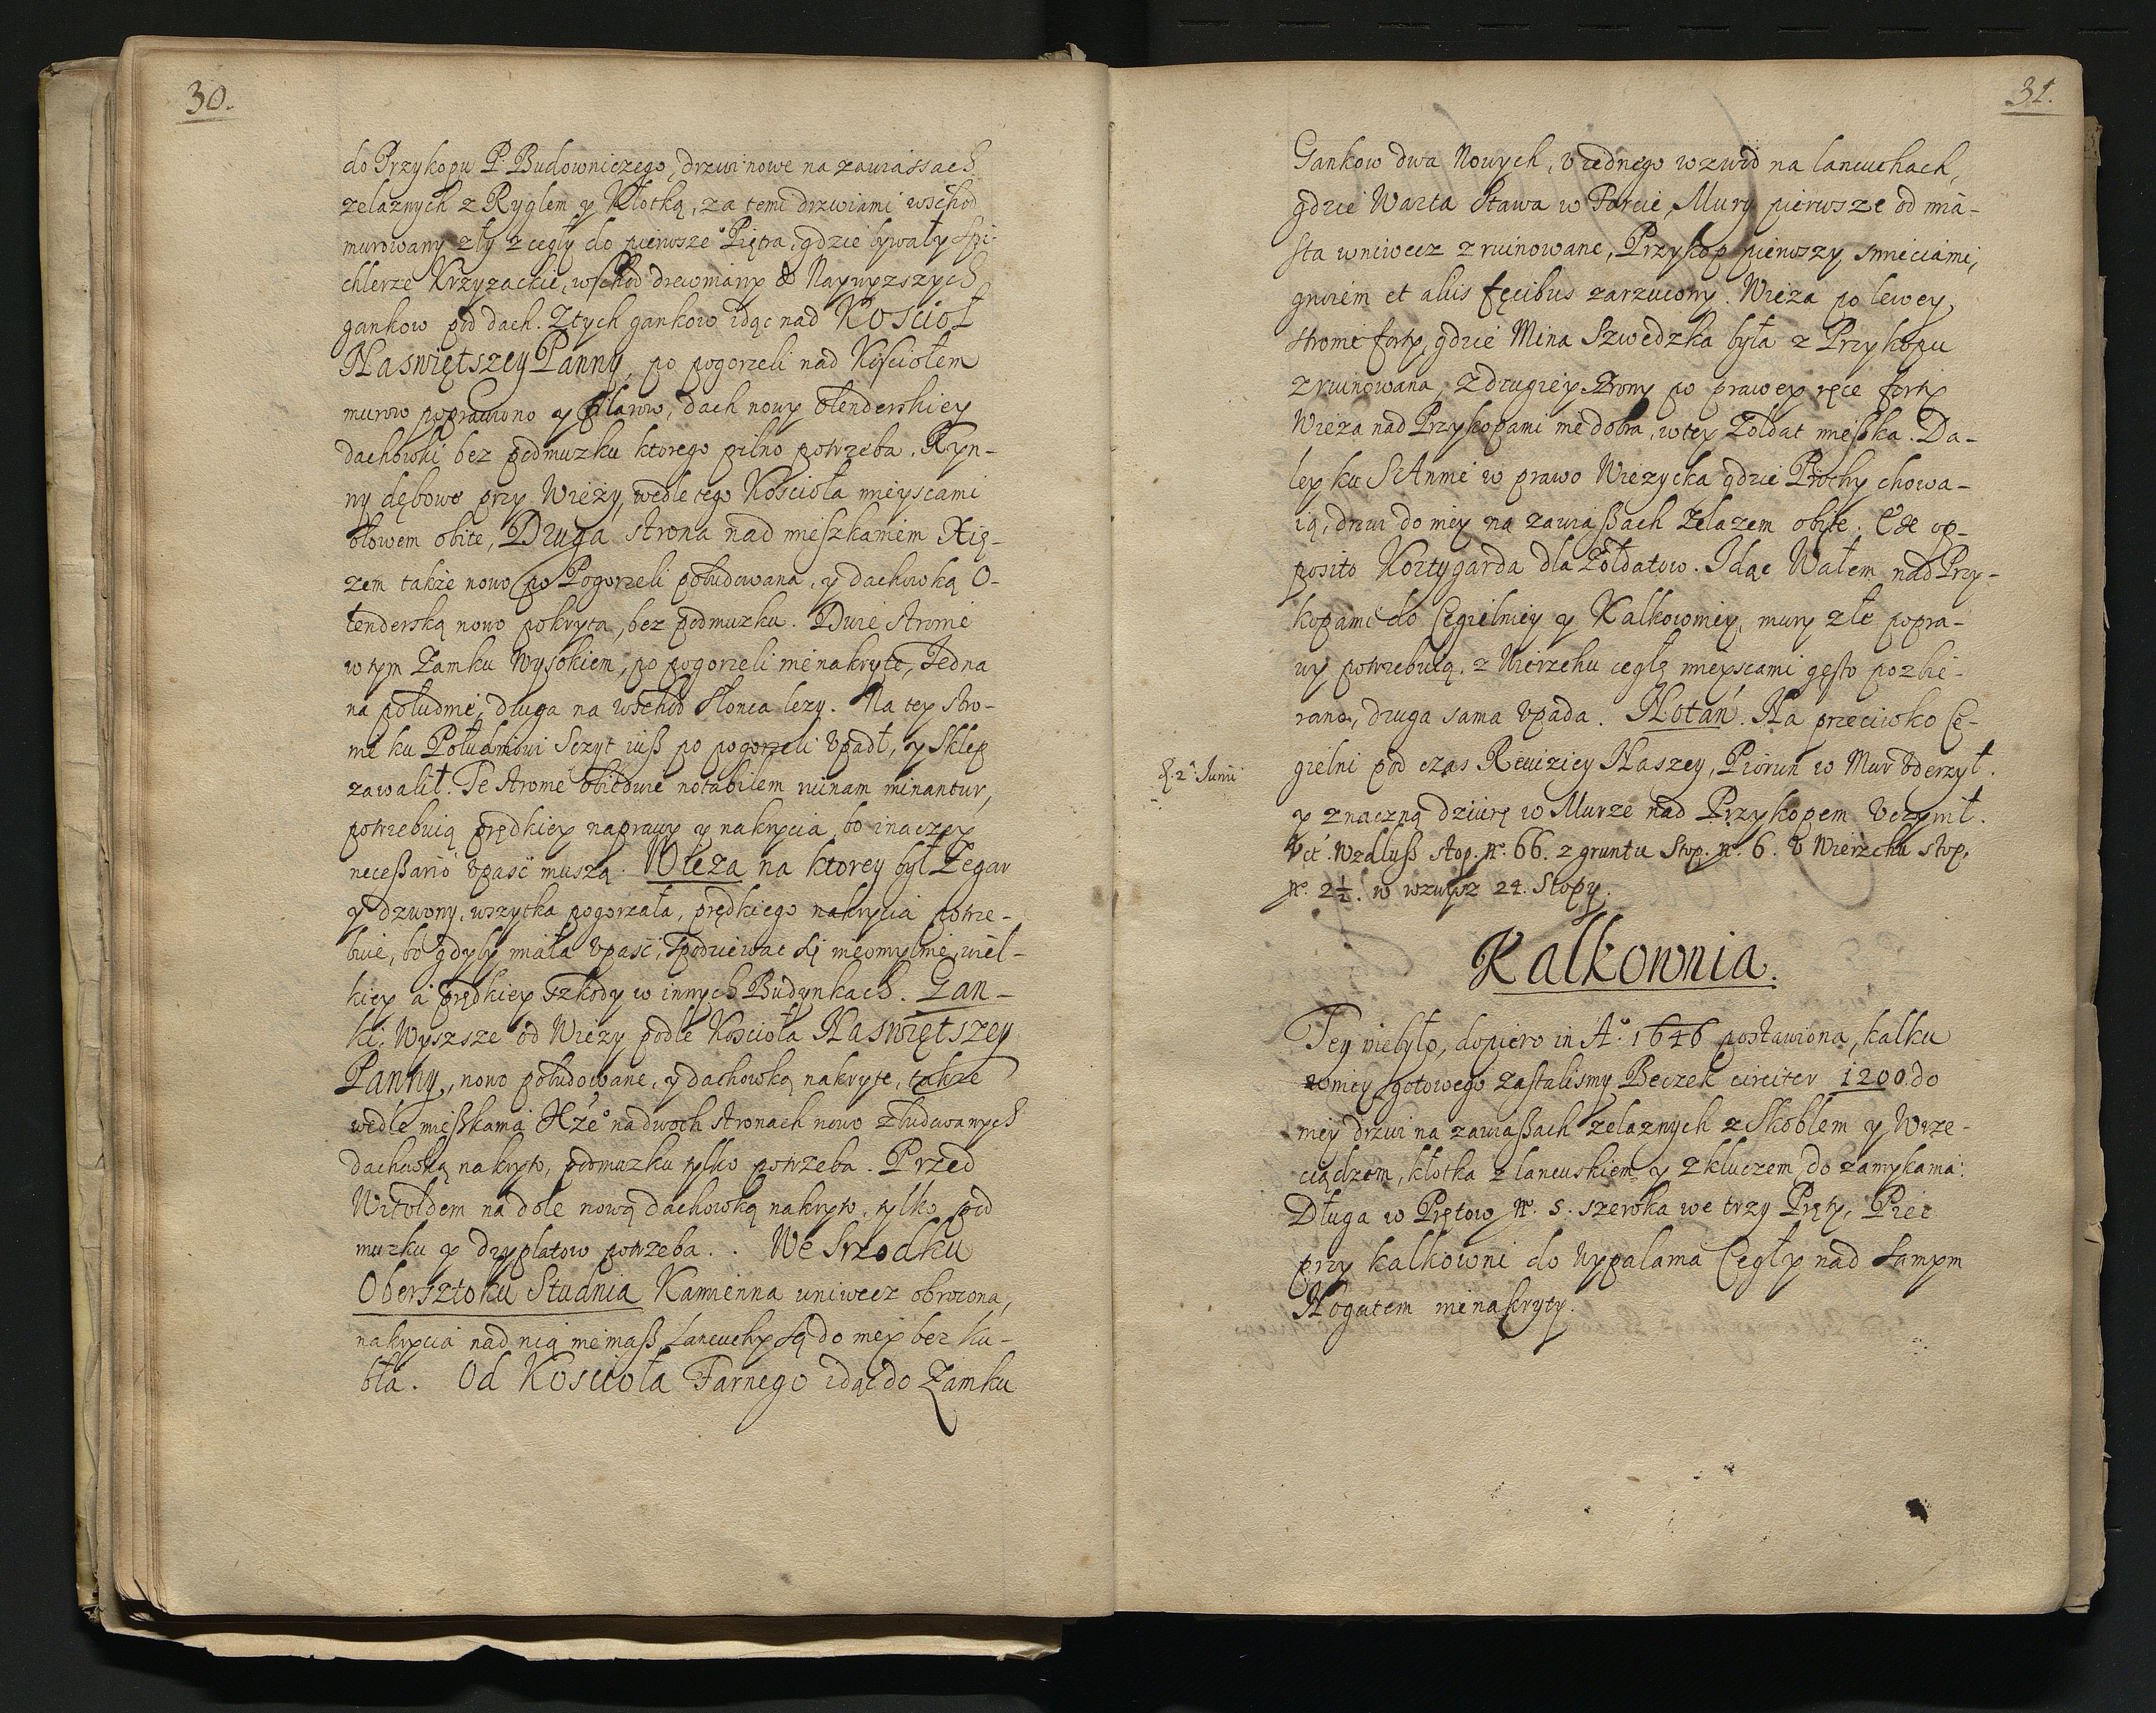 30.
do Przykopu P. Budowniczego, drzwi nowe na zawiassach
zelaznych z Ryglem y Kłotką, za temi drzwiami wschod
murowany zły z cegły do pierwszeº Piętra, gdzie bywały Spi-
chlerze Krzyzackie, wschod drewniany do Naywyzszych
gankow pod dach. Ztych gankow idąc nad Kosciol
Naswiętszey Panny, po pogorzeli nad Kosciołem
murow poprawiono y filarow, dach nowy Olenderskiey
dachowki bez podmuzku ktorego pilno potrzeba. Ryn-
ny dębowe przy Wiezy, wedle tego Kosciola mieyscami
ołowem obite, Druga strona nad mieszkaniem Xię-
zem takze nowo po Pogorzeli pobudowana, y dachowką O-
lenderską nowo pokryta, bez podmuzku. Dwie stronie
w tym Zamku Wysokiem, po pogorzeli nienakryte, Jedna
na południe, druga na wschod słonca lezy. Na tey stro-
nie ku Południowi Sczyt iuß po pogorzeli vpadł, y Sklep
zawalił. Te stronie obiedwie notabilem ruinam minantur,
potrzebuią prędkiey naprawy y nakrycia, bo inaczey
neceßario vpasć muszą. Wieza na ktorey był Zegar
y dzwony, wszytka pogorzała, prędkiego nakrycia potrze-
buie, bo gdyby miała vpasć, spodziewac się nieomylnie, wiel-
kiey a prędkiey szkody w innych Budynkach. Gan-
ki. Wyszsze od Wiezy podle Kosciola Naswiętszey
Panny, nowo pobudowane, y dachowką nakryte, takze
wedle mießkania Xżeº na dwoch stronach nowo zbudowanych
dachowką nakryto, podmuzku tylko potrzeba. Przed
Witołdem na dole nową dachowką nakryto, tylko pod
muzku y dryplatow potrzeba. . We Srzodku
Obersztoku Studnia Kamienna wniwecz obrocona,
nakrycia nad nią niemaß, Lancuchy są do niey bez ku-
bła. Od Kosciola Farnego idąc do Zamku
31.
Gankow dwa Nowych, v iednego wzwod na lancuchach,
gdzie Warta Stawa w Forcie, Mury pierwsze od mia-
sta wniwecz zruinowane, Przykop pierwszy smieciami,
gnoiem et aliis fęcibus zarzucony. Wieza po lewey
stronie forty, gdzie Mina Szwedzka była z Przykopu
zruinowana, z drugiey strony po prawey ręce forty
Wieza nad Przykopami niedobra, w tey Zołdat mießka. Da-
ley ku S. Annie w prawo Wiezycka gdzie Prochy chowa-
ią, drzwi do niey na zawiaßach Zelazem obite. Ex op-
posito Kortygarda dla Zołdatow. Idąc Wałem nad Przy-
kopami do Cegielniey y Kalkowniey, mury złe popra-
wy potrzebuią. z Wierzchu cegłę mieyscami gęsto pozbie-
rano, druga sama vpada. Notań. Na przeciwko Ce-
gielni pod czas Rewiziey Naszey, Piorun w Mur vderzył.
d. 2ª Junii
y znaczną dziurę w Murze nad Przykopem Vczynił.
Vċt. Wzdłuß stop. Nº. 66. z gruntu Stop. Nº. 6. v Wierzchu stop.
Nº. 2½. w wzwysz 24. Stopy.
Kalkownia.
Tey niebyło, dopiero in Aº. 1646 postawiona, kalku
w niey gotowego zastalismy Beczek circiter 1200. do
niey drzwi na zawiaßach zelaznych z Skoblem y Wrze-
ciądzem, kłotka z lancuskiem y z kluczem do zamykania.
Długa w Prętow Nº. 5. szeroka we trzy Pręty, Piec
przy kalkowni do Wypalania Cegły nad samym
Nogatem nienakryty.